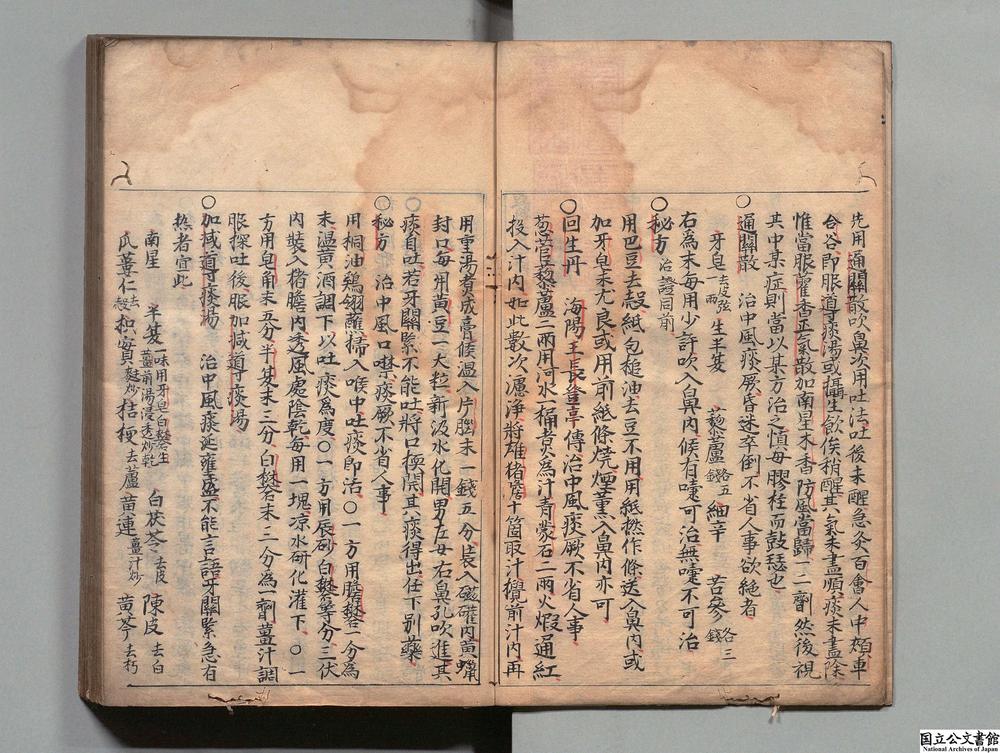 先用通關散吹鼻次用吐法吐後未醒急灸百會人中頰車
合谷即服導痰湯或攝生飲俟稍醒其氣未盡順痰未盡除
惟當服藿香正氣散加南星木香防風當歸一二劑然後視
其中某症則當以某方治之慎毋膠柱而鼓瑟也
○通關散 治中風痰厥昏迷卒倒不省人事欲絶者
牙皂去皮弦一兩 生半夏 藜蘆各五錢 細辛 苦參各三錢
右為末每用少許吹入鼻內候有嚏可治無嚏不可治
○秘方 治證同前
用巴豆去殼紙包槌油去豆不用用紙撚作條送入鼻內或
加牙皂末尤良或用前紙條燒煙薰入鼻內亦可
○回生丹 海陽王長壹享傳治中風痰厥不省人事
苽芐藜蘆二兩用河水一桶煮為汁青蒙石二兩火煅通紅
投入汁內如此數次濾淨將雄猪膽十箇取汁攪前汁內再
用重湯煑成膏候溫入片腦末一錢五分裝入磁礶內黃蠟
封口每用黃豆一大粒新汲水化開男左女右鼻孔吹進其
痰自吐若牙關緊不能吐將口撬開其痰得出任下別藥
○秘方 治中風口噤痰厥不省人事
用桐油鷄翎蘸掃入喉中吐痰即活○一方用膽礬一分為
末溫黃酒調下以吐痰為度○一方用辰砂白礬等分三伏
內裝入猪膽內透風處陰乾每用一塊凉水研化灌下○一
方用皂角末五分半夏末三分白礬末二分為一劑薑汁調
服探吐後服加減導痰湯
○加減導痰湯 治中風痰涎壅盛不能言語牙關緊急有
熱者宜此
南星 半夏二味用牙皂白礬生薑煎湯浸透炒乾 白茯苓去皮 陳皮去白
瓜蔞仁去殼 枳實麩炒 桔梗去蘆 黃連薑汁炒 黃芩去朽
国立公文書館
National Archives of Japan